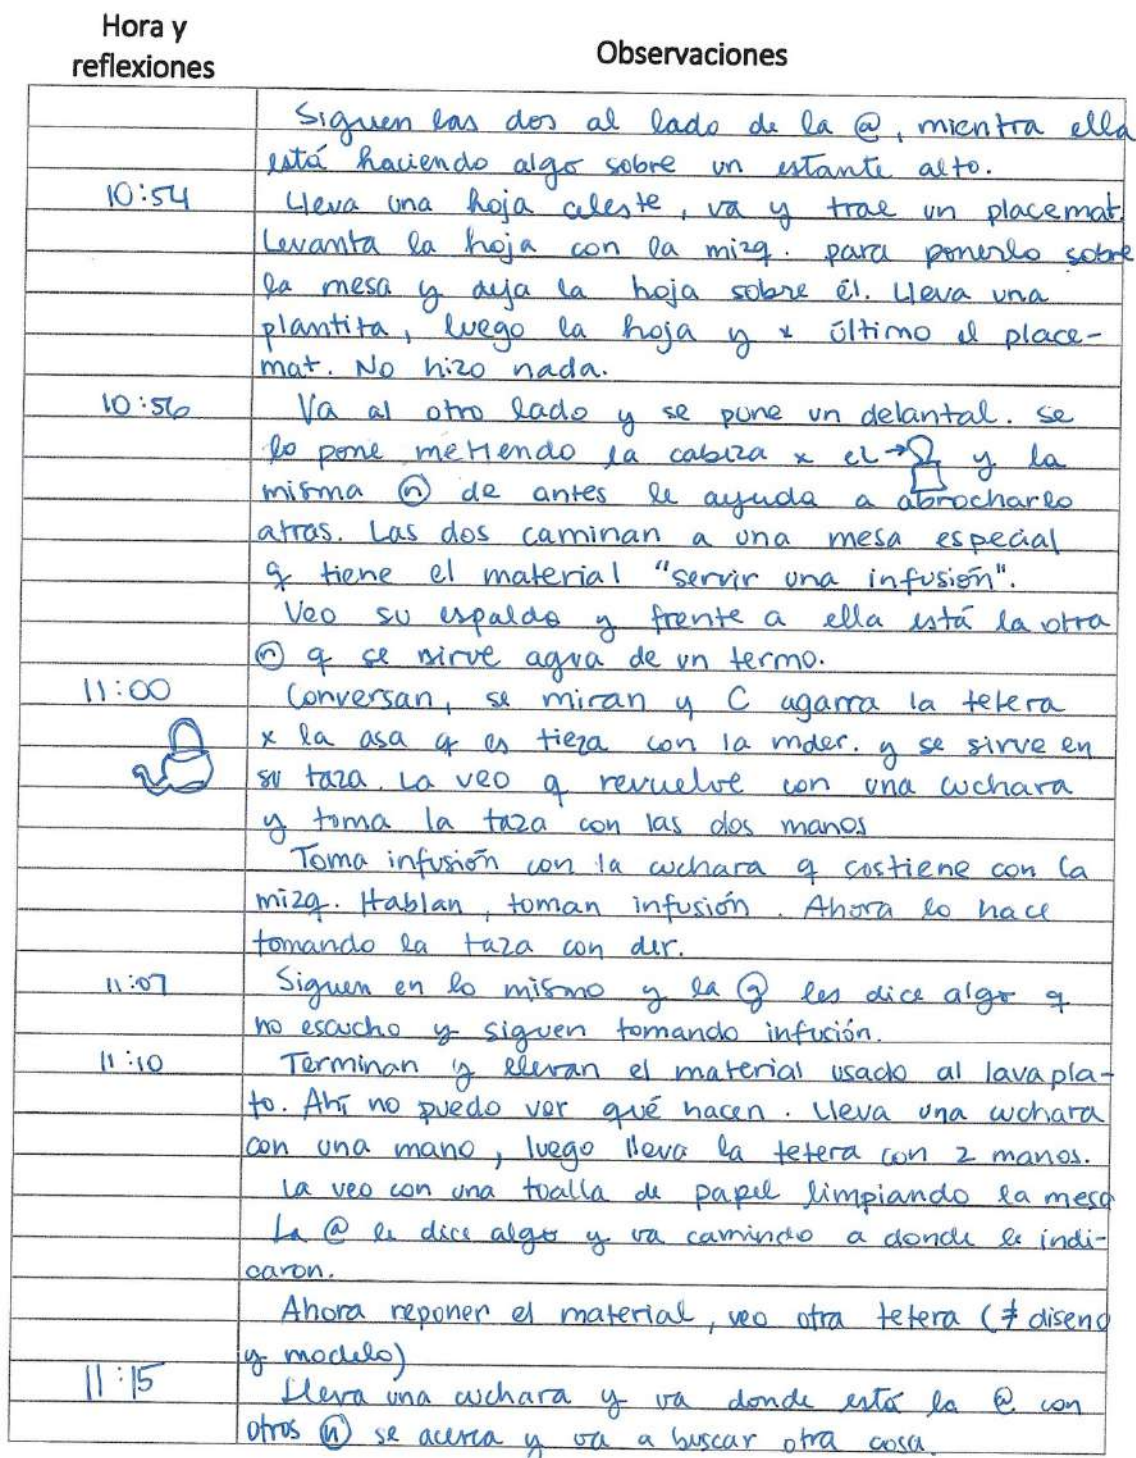 Hora y reflexiones
Observaciones
Siguen las dos al lado de la @, mientra ella
está haciendo algo sobre un estante alto.
10:54 Lleva una hoja celeste, va y trae un placemat.
Levanta la hoja con la mizq. para ponerlo sobre
la mesa y deja la hoja sobre él. Lleva una
plantita, luego la hoja y x último el place-
mat. No hizo nada.
10:56 Va al otro lado y se pone un delantal. Se
lo pone metiendo la cabeza x el → y la
misma ⓝ de antes le ayuda a abrocharlo
atras. Las dos caminan a una mesa especial
q tiene el material "servir una infusión".
Veo su espalda y frente a ella está la otra
ⓝ q se sirve agua de un termo.
11:00 Conversan, se miran y C agarra la tetera
x la asa q es tieza con la mder. y se sirve en
su taza. La veo q revuelve con una cuchara
y toma la taza con las dos manos
Toma infusión con la cuchara q costiene con la
mizq. Hablan, toman infusión. Ahora lo hace
tomando la taza con der.
11:07 Siguen en lo mismo y la @ les dice algo q
no escucho y siguen tomando infusión.
11:10 Terminan y llevan el material usado al lavapla-
to. Ahí no puedo ver qué hacen. Lleva una cuchara
con una mano, luego lleva la tetera con 2 manos.
La veo con una toalla de papel limpiando la mesa
La @ le dice algo y va camindo a donde le indi-
caron.
Ahora reponer el material, veo otra tetera (≠ diseno
y modelo)
11:15 Lleva una cuchara y va donde está la @ con
otros ⓝ se acerca y va a buscar otra cosa.